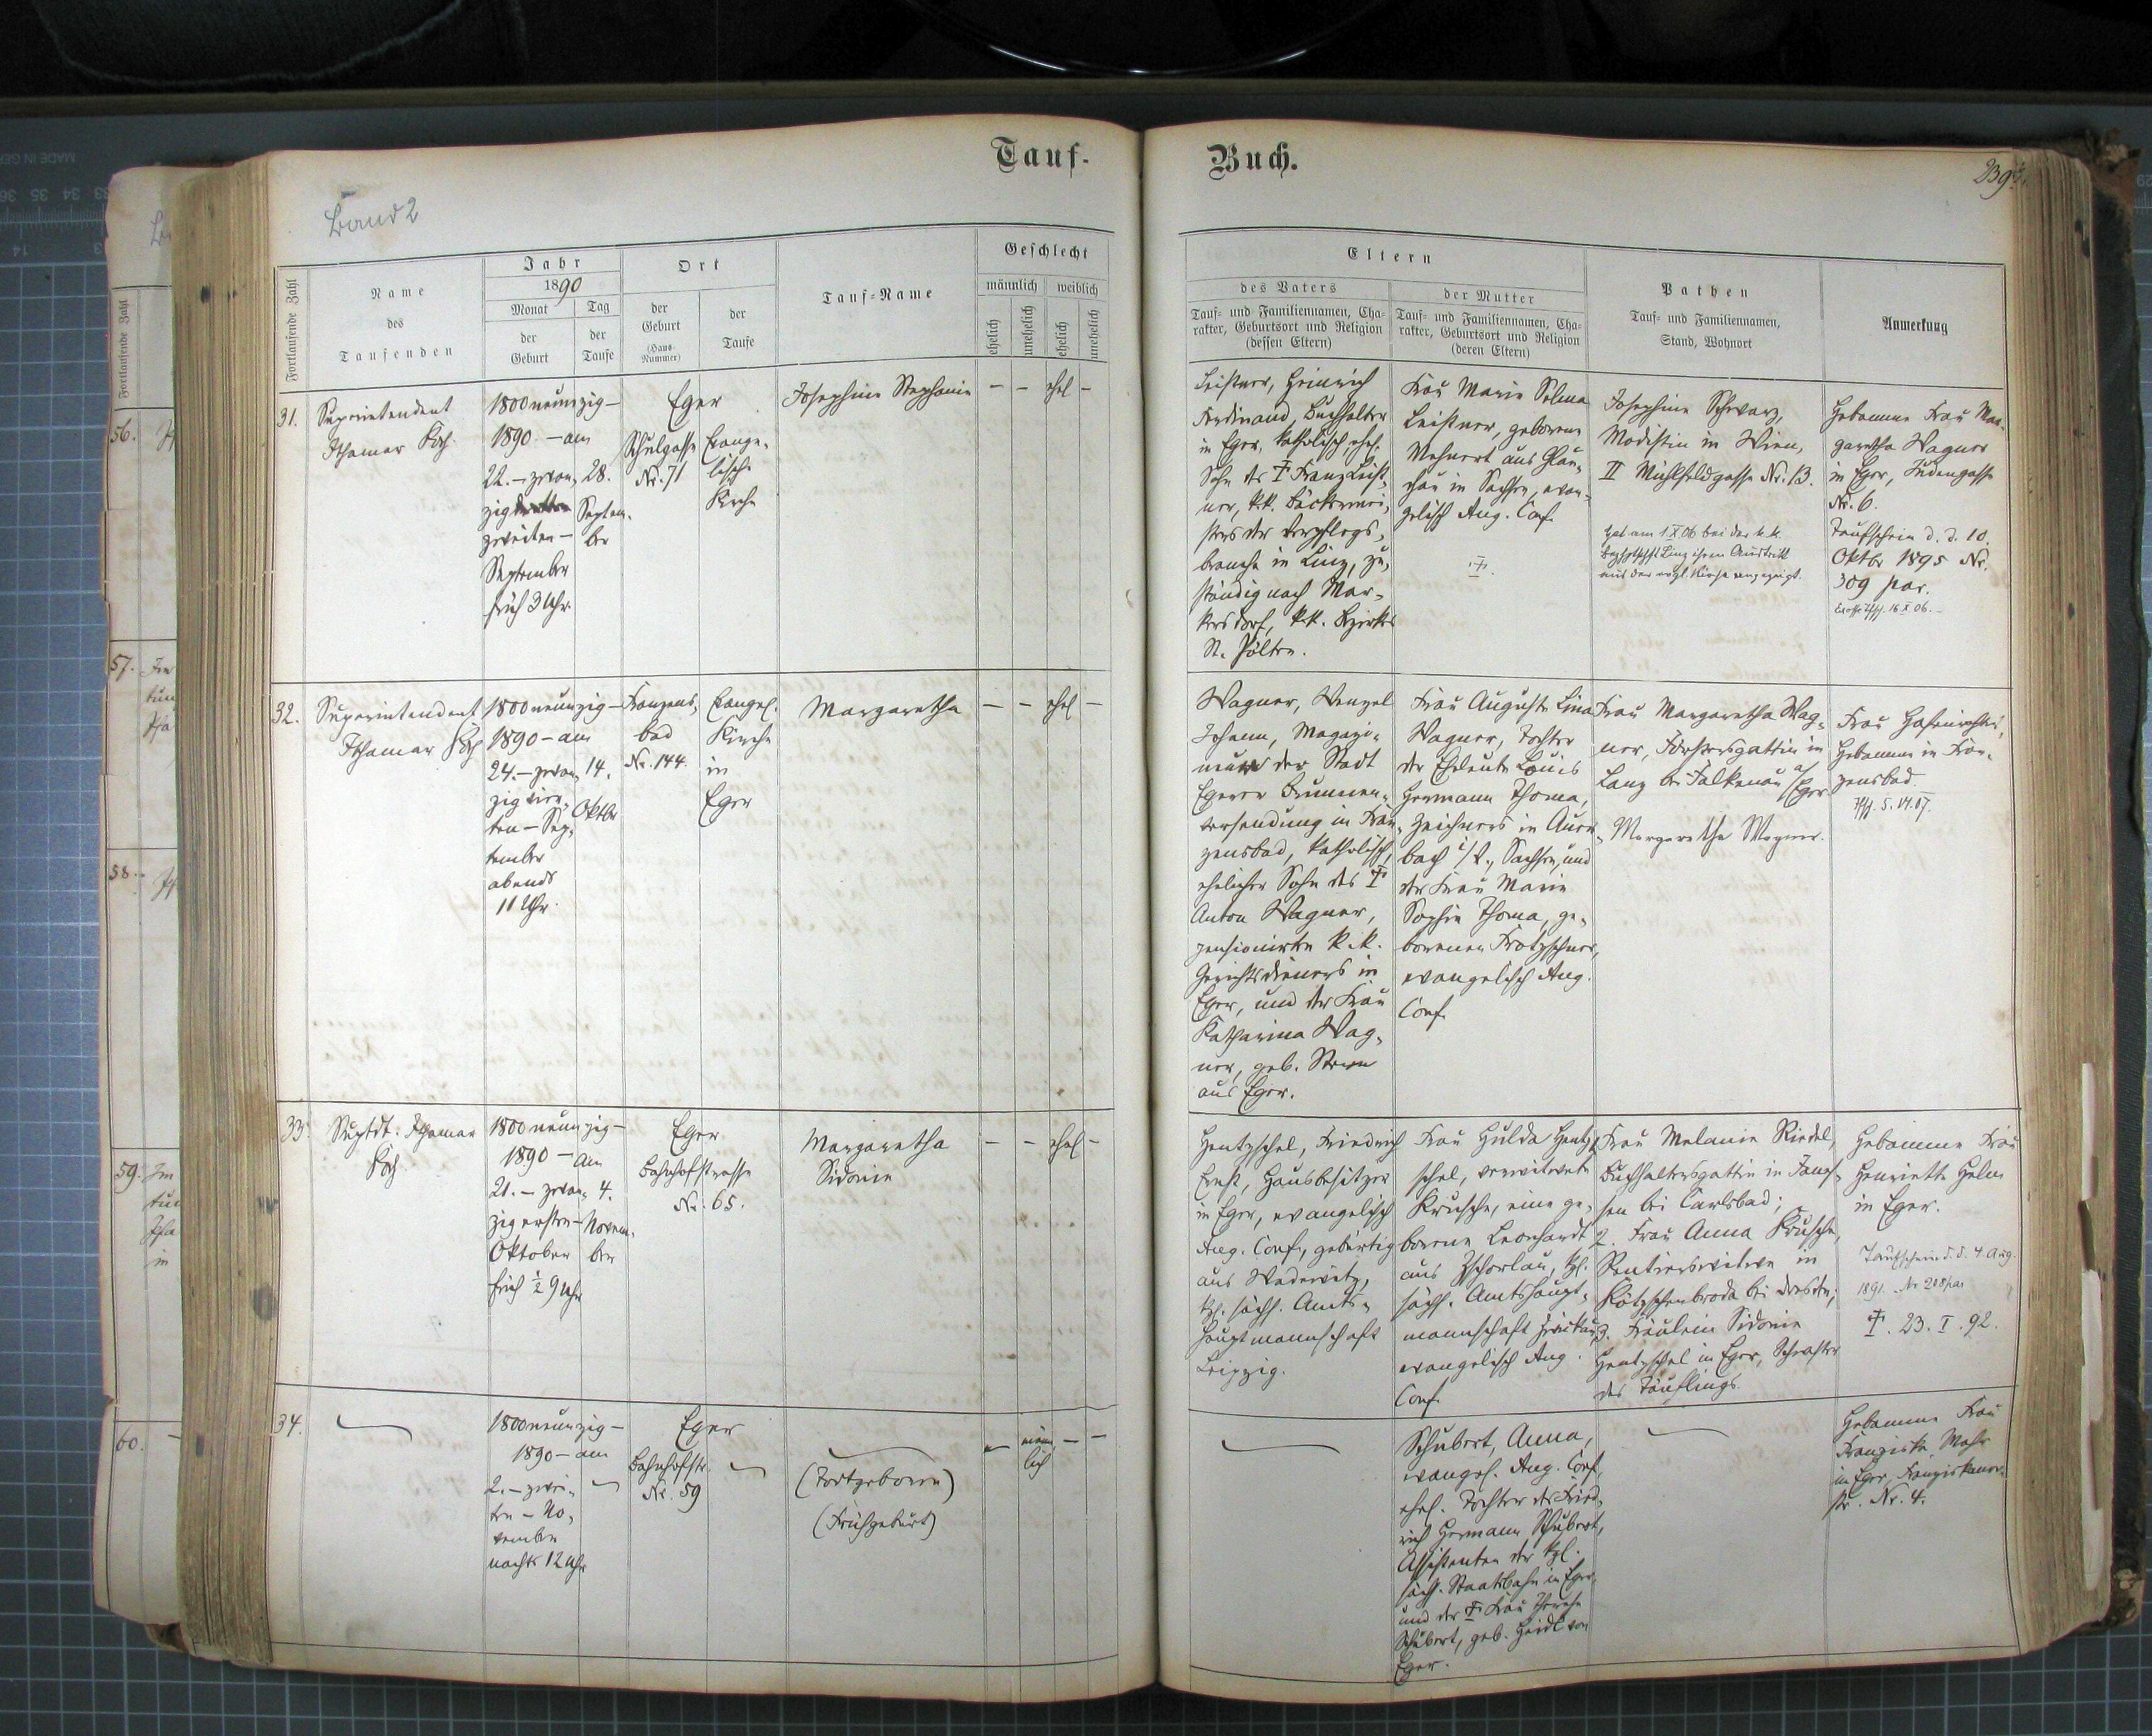 Tauf-
Buch.
Band 2
Fortlaufende Zahl
Name
des
Taufenden
Jahr
1890
Monat
der
Geburt
Tag
der
Taufe
Ort
der
Geburt
(Haus-
Nummer)
der
Taufe
Tauf-Name
Geschlecht
männlich
weiblich
ehelich
unehelich
ehelich
unehelich
Eltern
des Vaters
Tauf- und Familiennamen, Cha-
rakter, Geburtsort und Religion
(dessen Eltern)
der Mutter
Tauf- und Familiennamen, Cha-
rakter, Geburtsort und Religion
(deren Eltern)
Pathen
Tauf- und Familiennamen,
Stand, Wohnort
Anmerkung
31.
Superintendent
Ithamar Koch.
1800neunzig-
1890. - am
22. - zwan-
zig
zweiten -
September
früh 3 Uhr.
28.
Septem-
ber
Eger
Schulgasse
Nr. 71
Evange-
lische
Kirche
Josephine Stephanie
- - ehel -
Leistner, Heinrich
Ferdinand, Buchhalter
in Eger, katholisch, ehel.
Sohn des † Franz Leist-
ner, k.k. Bäckermei-
sters der Verpflegs-
branche in Linz, zu-
ständig nach Mar-
kersdorf, k.k. Bezirks
St. Pölten.
Frau Marie Selma
Leistner, geborene
Mehnert aus Glau-
chau in Sachsen, evan-
gelisch Aug. Conf.
†.
Josephine Schwarz,
Modistin in Wien,
II Mühlfeldgasse Nr. 13.
Hat am 1.X.06 bei der k.k.
Bezhptschft Linz ihren Austritt
aus der evgl. Kirche angezeigt.
Hebamme Frau Mar-
garetha Wagner
in Eger, Judengasse
Nr. 6.
Taufschein d. d. 10.
Oktbr 1895 Nr.
309 par.
32.
Superintendent
Ithamar Koch
1800neunzig -
1890 - am
24. - zwan-
zig vier-
ten - Sep-
tember
abends
11 Uhr.
14.
Oktbr
Franzens-
bad
Nr. 144.
Evangel.
Kirche
in
Eger
Margaretha
- - ehel -
Wagner, Wenzel
Johann, Magazi-
neur der Stadt
Egerer Brunnen-
versendung in Fran-
zensbad, katholisch,
ehelicher Sohn des †
Anton Wagner,
pensionirten k.k.
Gerichtsdieners in
Eger, und der Frau
Katharina Wag-
ner, geb.
aus Eger.
Frau Auguste Lina
Wagner, Tochter
der Eheleute Louis
Hermann Thoma,
Zeichners in Auer-
bach i/V., Sachsen, und
der Frau Marie
Sophie Thoma, ge-
borenen Trotzschner,
evangelisch Aug.
Conf.
Frau Margaretha Wag-
ner, Försters gattin in
Lanz bei Falkenau a/Eger
Margarethe Wagner.
Frau
Hebamme in Fran-
zensbad.
33.
Suptdt. Ithamar
Koch.
1800neunzig -
1890 - am
21. - zwan-
zigersten -
Oktober
früh ½ 9 Uhr
4.
Novem-
ber
Eger
Bahnhofstrasse
Nr. 65.
Margaretha
Sidonie
- - ehel -
Hentzschel, Friedrich
Ernst, Hausbesitzer
in Eger, evangelisch
Aug. Conf., gebürtig
aus Wederwitz,
kgl. sächs. Amts-
hauptmannschaft
Leipzig.
Frau Hulda Hentz-
schel, verwitwete
Krusche, eine ge-
borene Leonhardt
aus Zschorlau, kgl.
sächs. Amtshaupt-
mannschaft Zwickau,
evangelisch Aug.
Conf.
Frau Melanie Riedel,
Buchhaltersgattin in Janes-
sen bei Carlsbad;
2. Frau Anna Krusche,
Rentierswitwe in
Kötzschenbroda bei Dresden;
3. Fräulein Sidonie
Hentzschel in Eger, Schwester
des Täuflings.
Hebamme Frau
Henriette Helm
in Eger.
Taufschein d. d. 4. Aug.
1891. Nr 208 par
†. 23. I. 92.
34.
1800neunzig -
1890 - am
2. - zwei-
ten - No-
vember
nachts 12 Uhr
Eger
Bahnhofstr.
Nr. 59
(Todtgeboren)
(Frühgeburt)
- männ-
lich - -
Schubert, Anna,
evangel. Aug. Conf,
ehel. Tochter des Fried-
rich Hermann Schubert,
Assistenten der kgl.
sächs. Staatsbahn in Eger,
und der † Frau Therese
Schubert, geb. Heidl von
Eger.
Hebamme Frau
Franziska Mohr
in Eger, Franziskaner-
str. Nr. 4.
Fortlaufende Zahl
56.
57.
58.
59.
60.